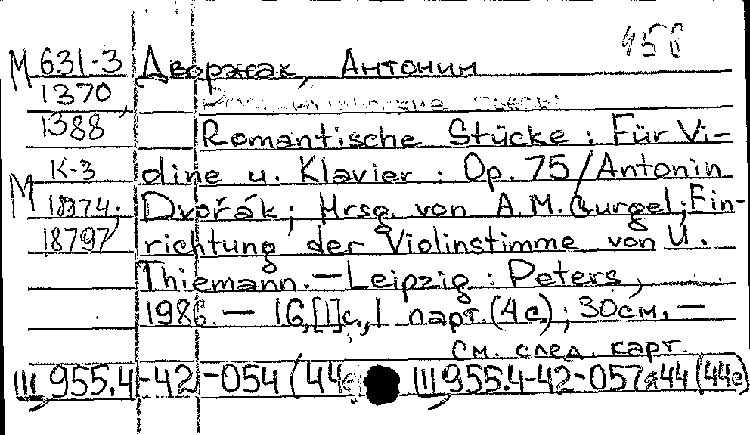 М 631-3 Дворжак, Антонин
1370,
1388 Romantische Stücke : Für Vi-
К-3 oline u. Klavier : Op. 75 / Antonin
М 18974; Dvořák; Hrsg. von A.M. Gurgel; Ein-
18797 richtung der Violinstimme von U.
Thiemann. — Leipzig : Peters,
1986. — 16,[1]с., 1 парт. (4 с); 30см. —
См. след. карт.
Ш, 955.4-42-054 (44 Ш, 955.4-42-057 44 (44е)